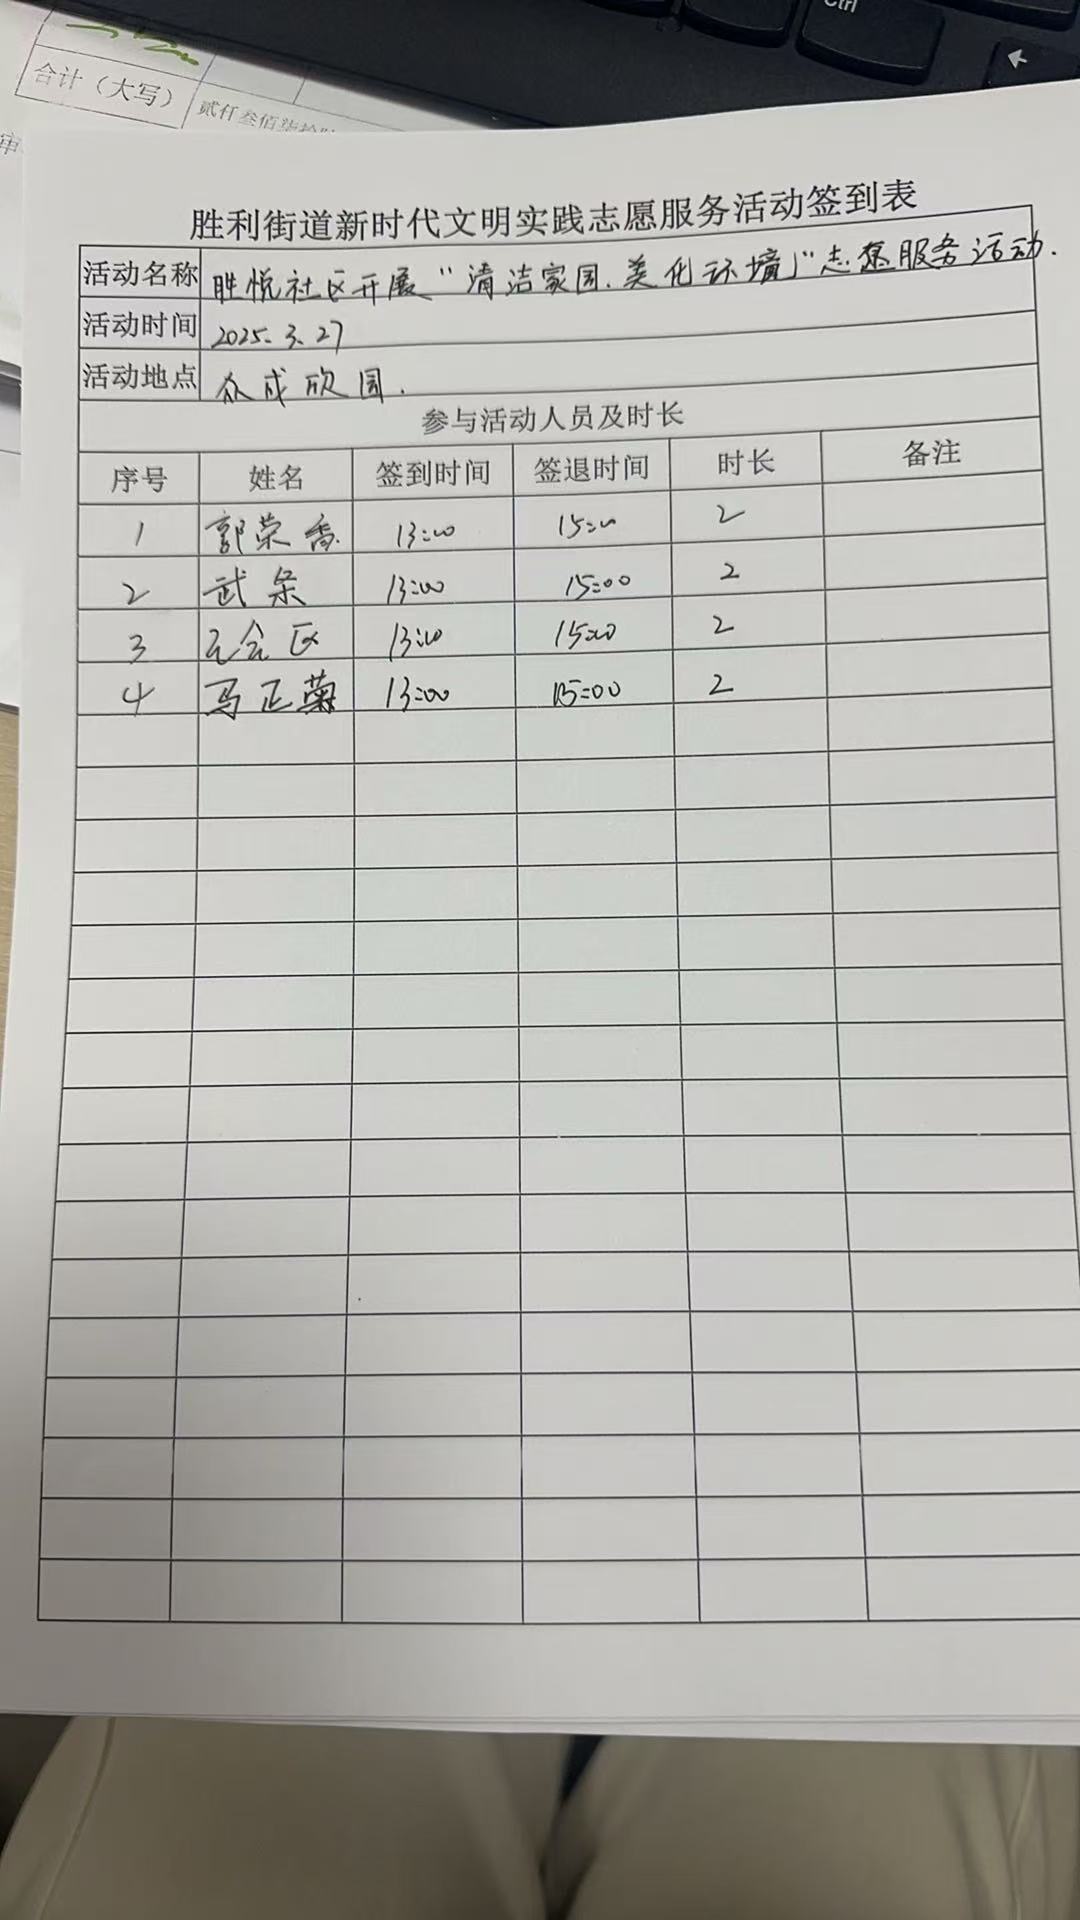 Ctrl
合计（大写）
贰仟叁佰柒拾
审
胜利街道新时代文明实践志愿服务活动签到表
活动名称 胜悦社区开展“清洁家园、美化环境”志愿服务活动.
活动时间 2025.3.27
活动地点 众成欣园.
参与活动人员及时长
序号 姓名 签到时间 签退时间 时长 备注
1 郭荣香 13:00 15:00 2
2 武 13:00 15:00 2
3 13:00 15:00 2
4 马正菊 13:00 15:00 2